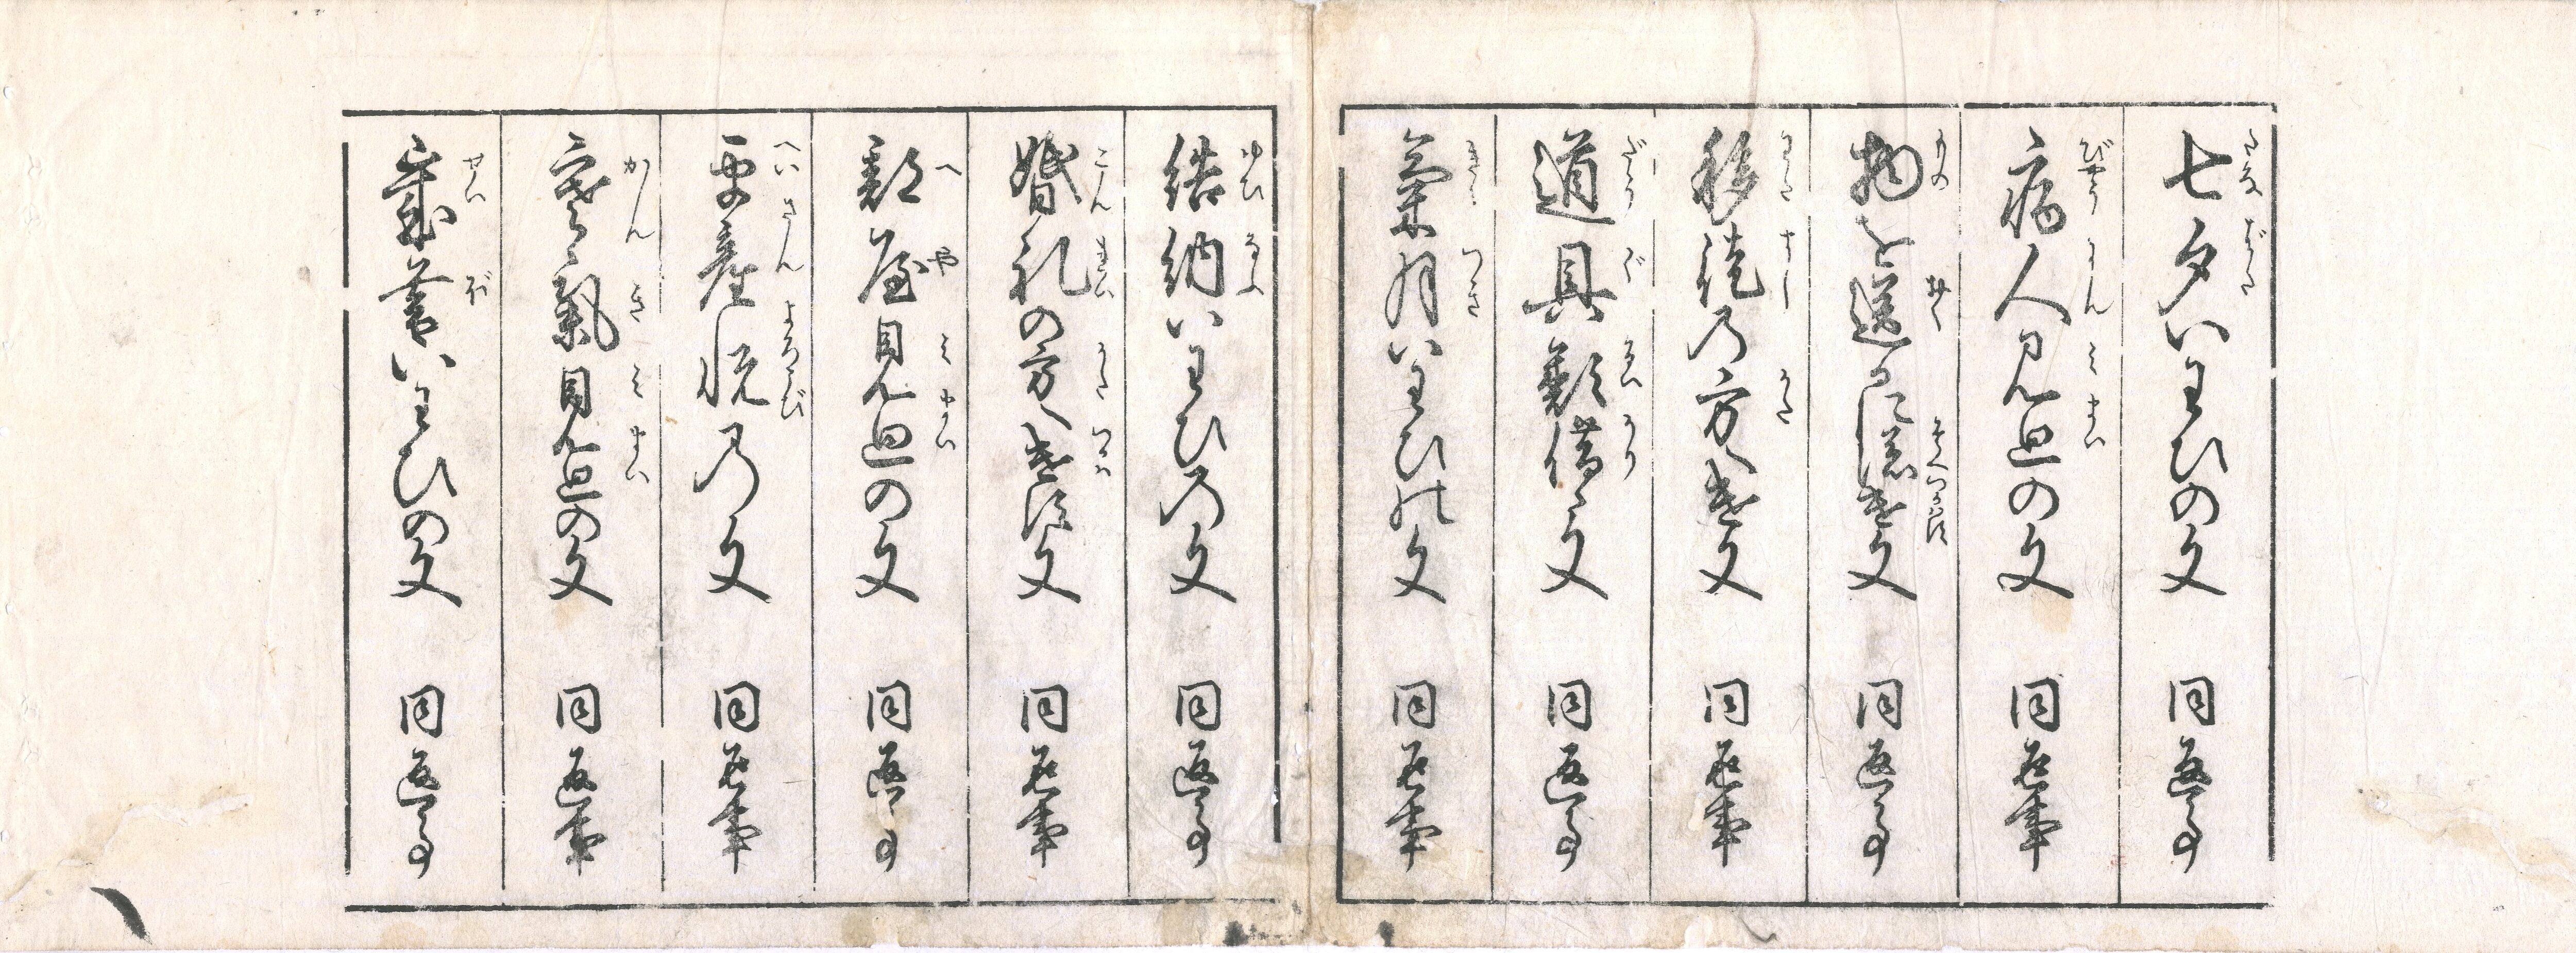 七夕いわひの文 同返事
病人見廻の文 同返事
物を送るに添遣文 同返事
移徙の方へ遣文 同返事
道具類借文 同返事
菊月いわひの文 同返事
結納いわひの文 同返事
婚礼の方へ遣す文 同返事
部屋見廻の文 同返事
平産悦の文 同返事
寒氣見廻の文 同返事
歳暮いわひの文 同返事